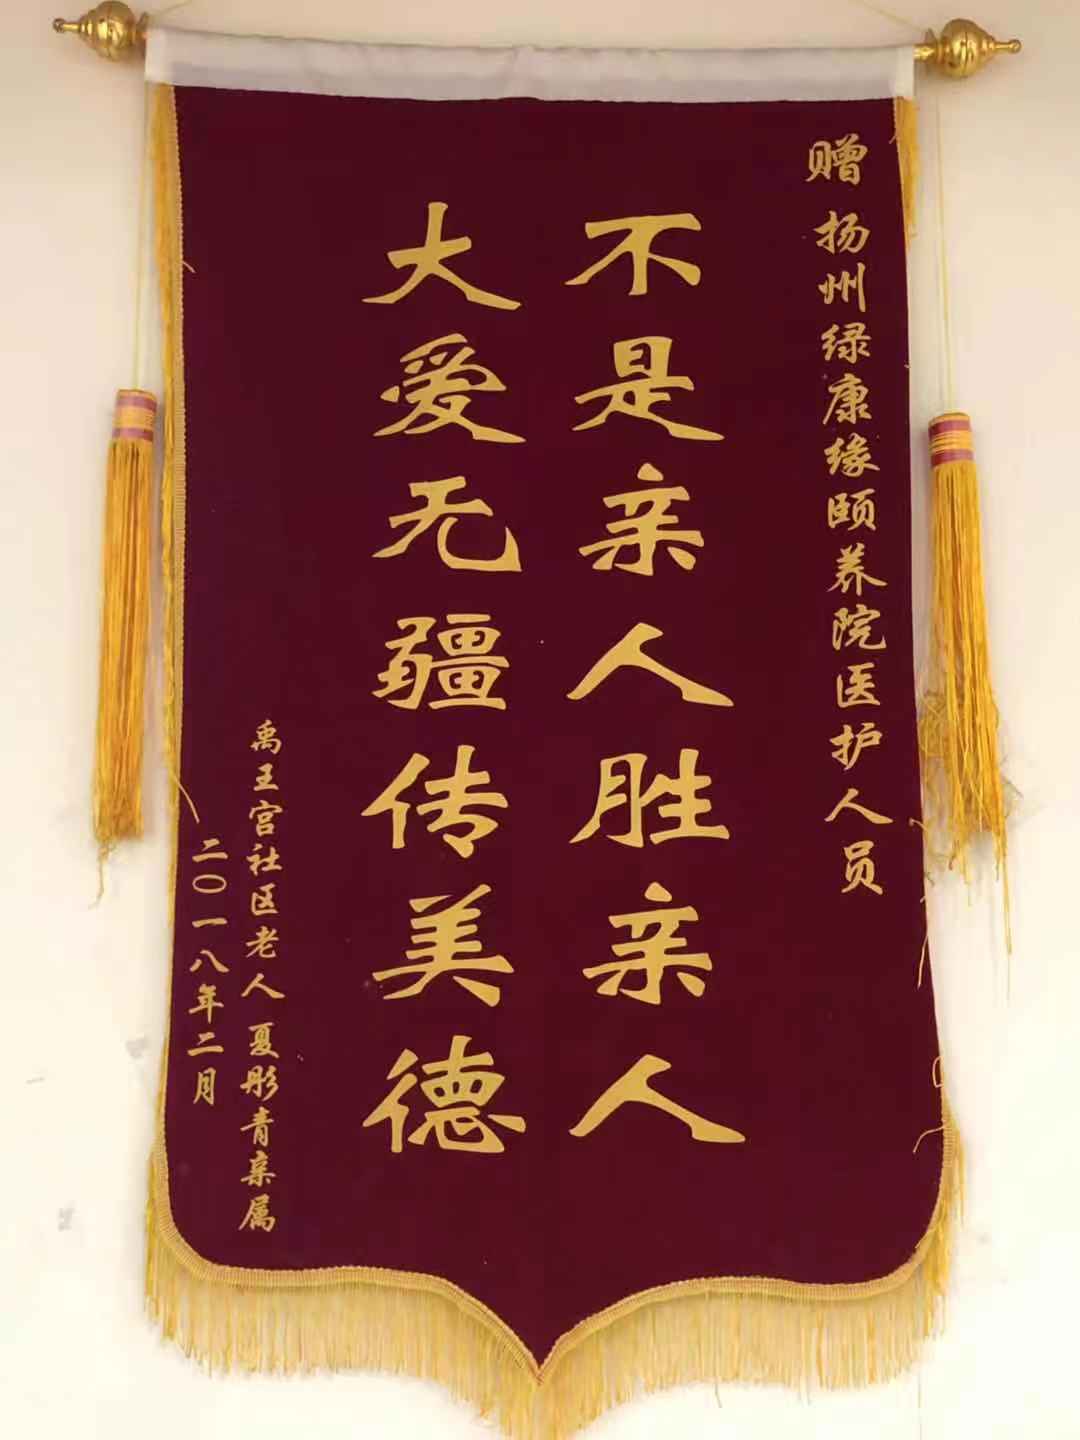 赠 扬州绿康缘颐养院医护人员
不是亲人胜亲人
大爱无疆传美德
禹王宫社区老人 夏彤青亲属
二〇一八年二月